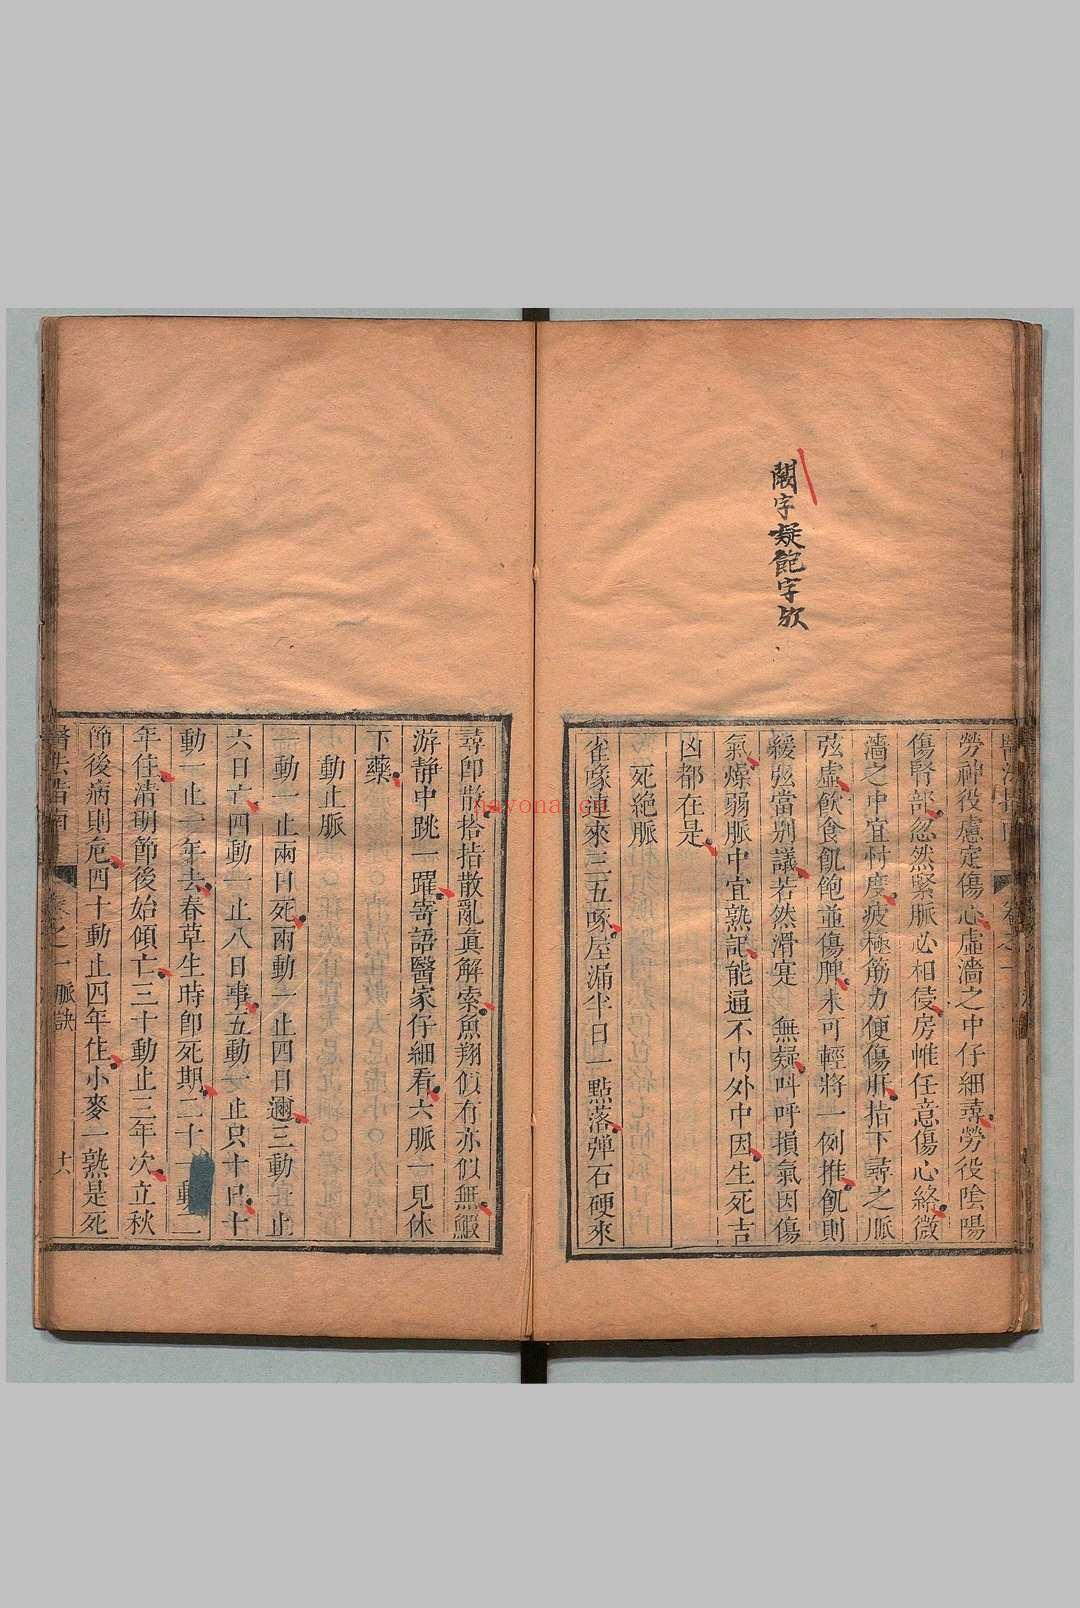 闕字疑飽字欤
勞神役慮定傷心虛濇之中仔細尋勞役陰陽
傷腎部忽然緊脈必相侵房帷任意傷心絡微
濇之中宜忖度疲極筋力便傷肝指下尋之脈
弦虛飲食飢飽並傷脾未可輕將一例推飢則
緩弦當別議若然滑寔 無疑呌呼損氣因傷
氣燥弱脈中宜熟記能通不內外中因生死吉
凶都在是
死絕脈
雀啄連來三五啄屋漏半日一點落彈石硬來
尋卽散搭指散亂眞解索魚翔似有亦似無鰕
游静中跳一躍寄語醫家仔細看六脈一見休
下藥
動止脈
一動一止兩日死兩動一止四日邇三動一止
六日亡四動一止八日事五動一止只十日十
動一止一年去春草生時卽死期二十 動二
年住清明節後始傾亡三十動止三年次立秋
節後病則危四十動止四年住小麥一熟是死
醫法指南 卷之一 脈訣 十六
nayona.cn